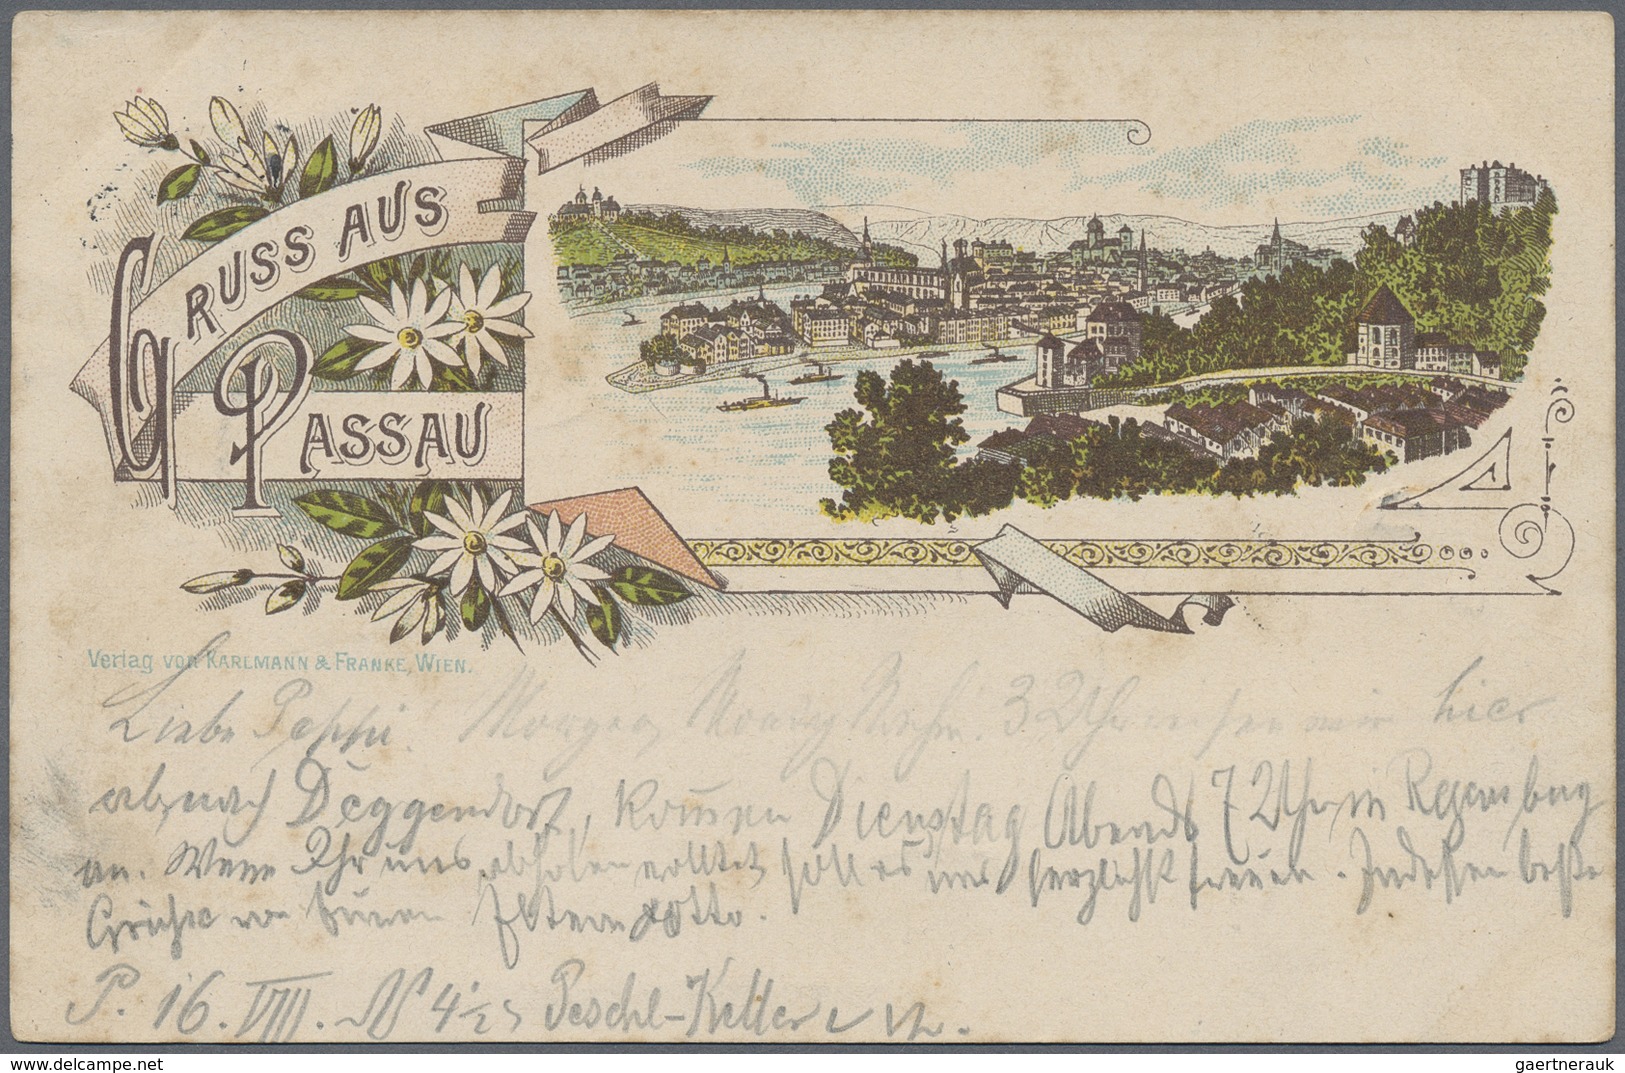 GRUSS AUS
PASSAU
Verlag von KARLMANN & FRANKE, WIEN.
Liebe Peppi! Morgen Montag Nachm. 3 Uhr reisen wir hier
ab nach Deggendorf, kommen Dienstag Abends 7 Uhr in Regensburg
an. Wenn Ihr uns abholen wolltet, soll es uns herzlichst freuen. Indessen beste
Grüße von Euren Eltern & Otto.
P. 16. VIII. N 4½ Peschl-Keller
www.delcampe.net
gaertnerauk